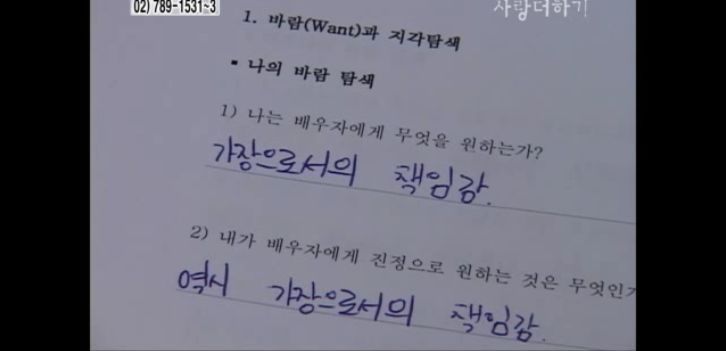 02) 789-1531~3
사랑더하기
1. 바람(Want)과 지각탐색
▪ 나의 바람 탐색
1) 나는 배우자에게 무엇을 원하는가?
가장으로서의 책임감.
2) 내가 배우자에게 진정으로 원하는 것은 무엇인가
역시 가장으로서의 책임감.